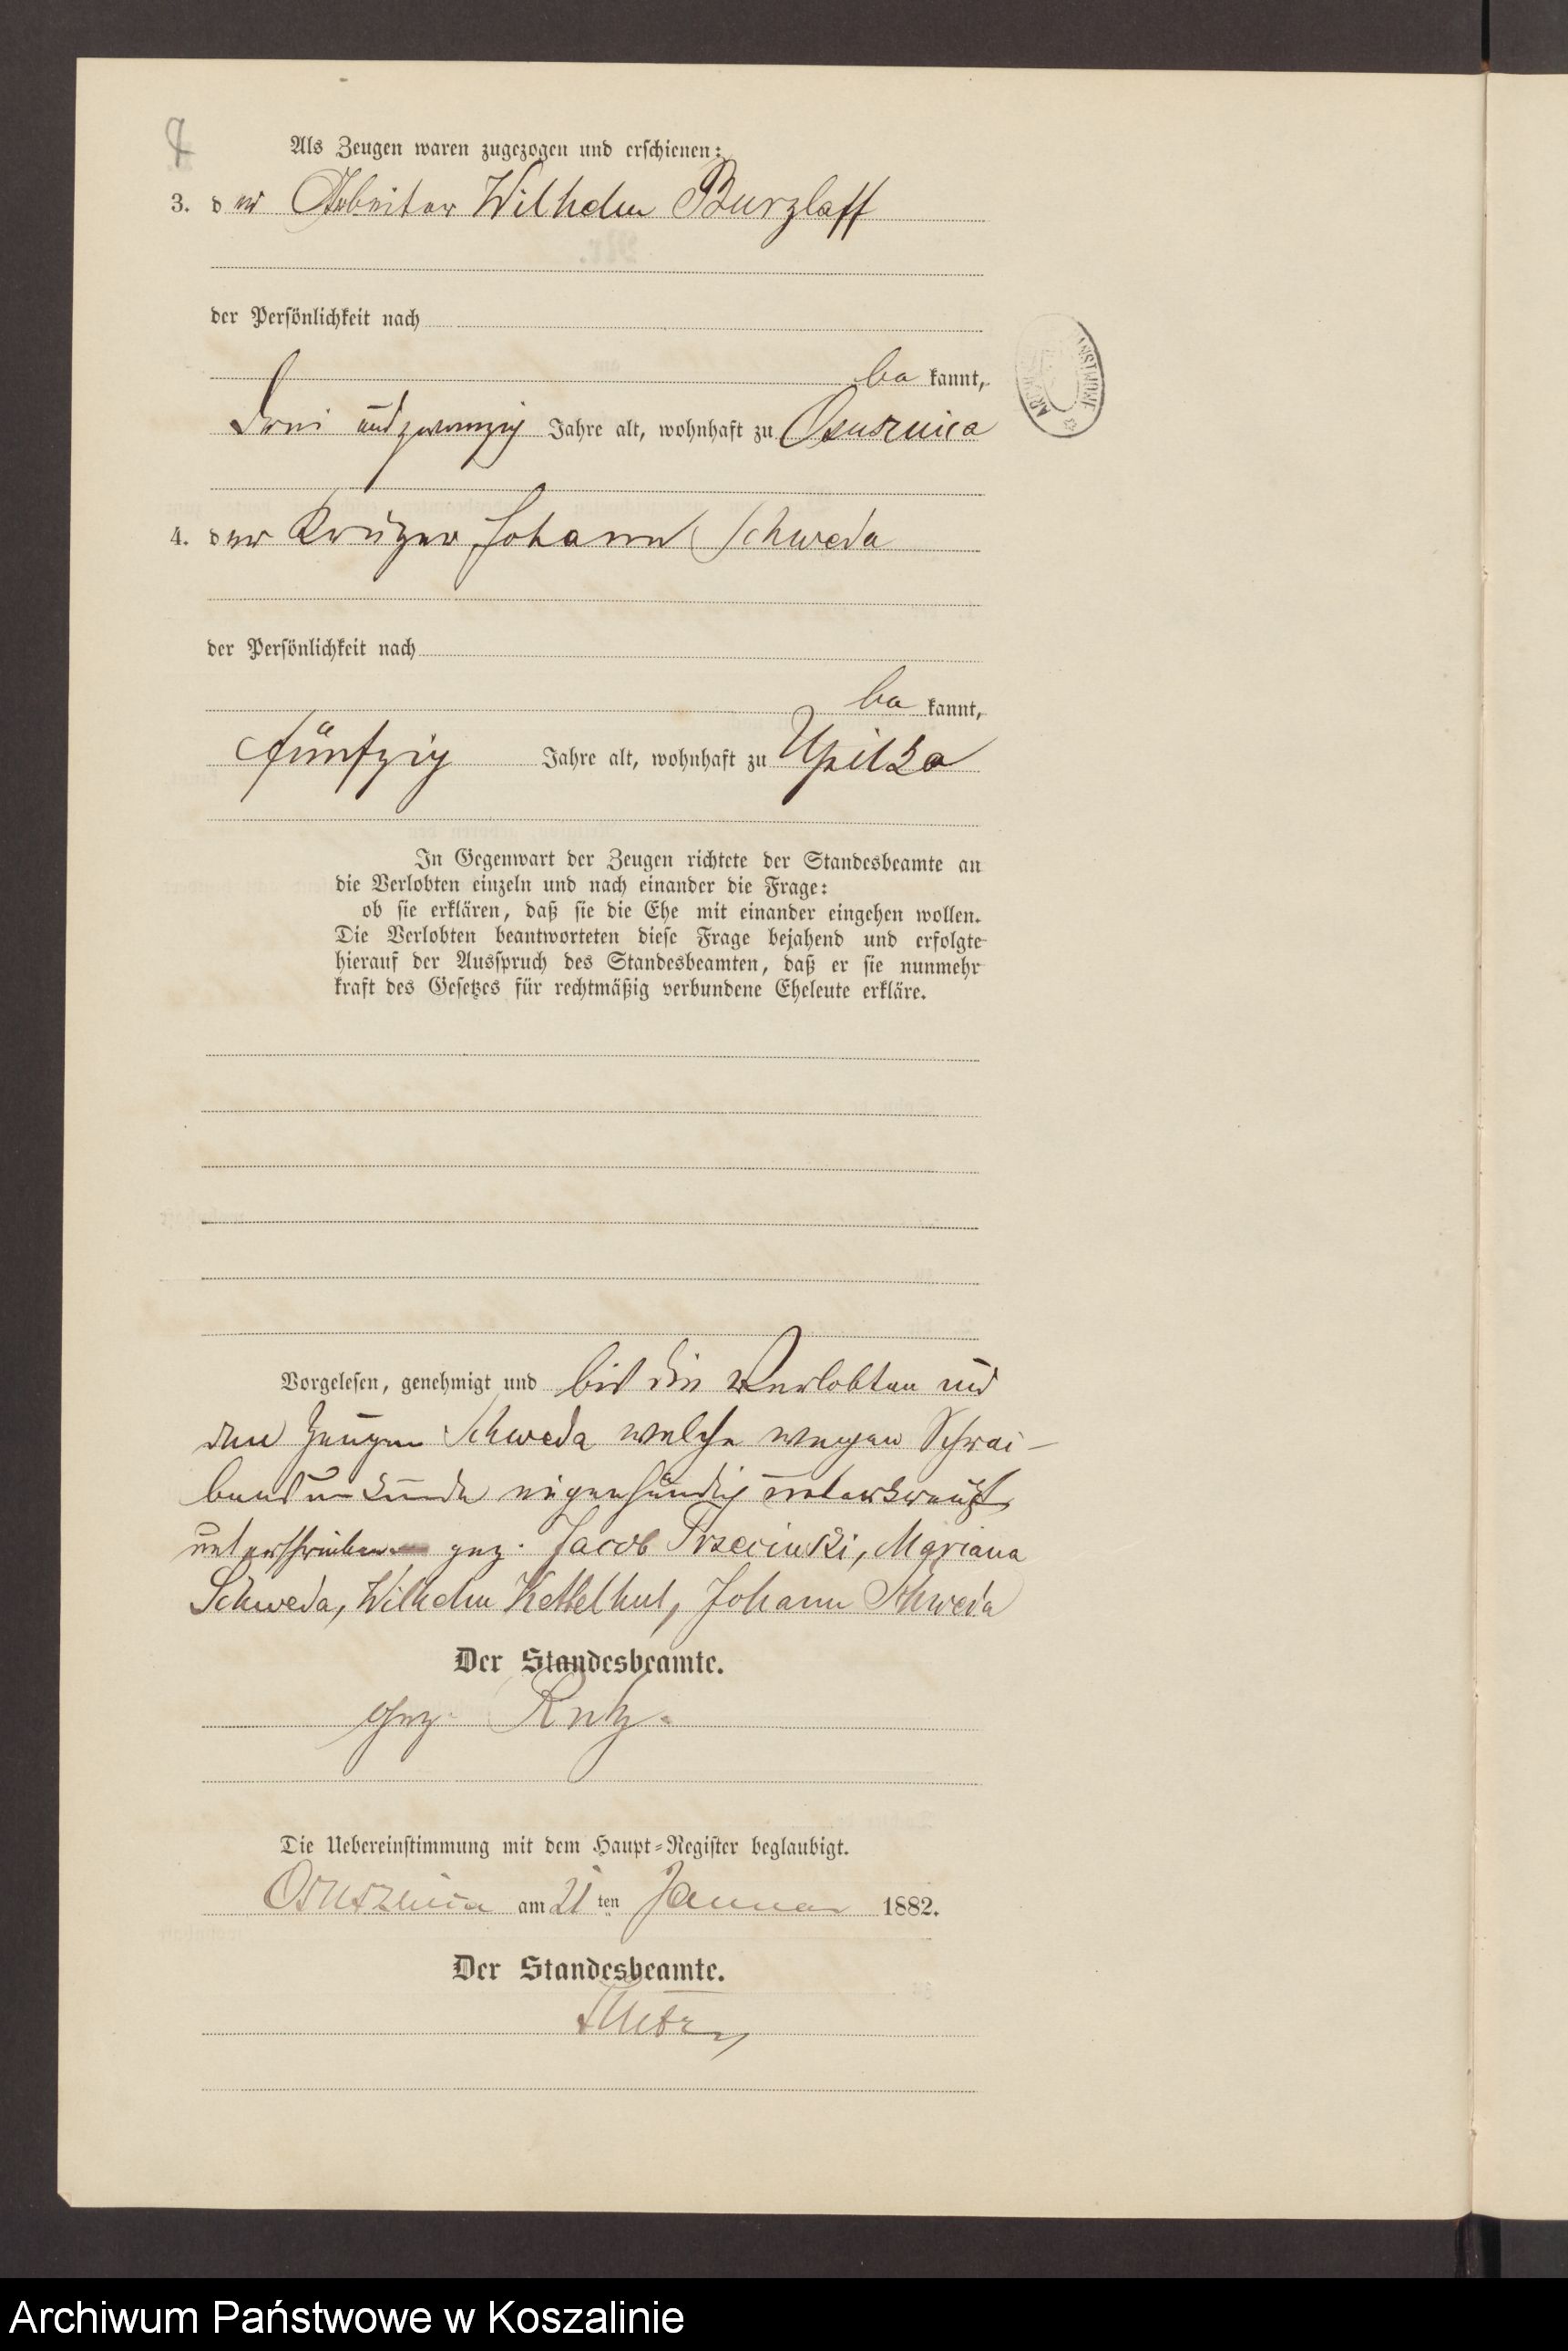 Als Zeugen waren zugezogen und erschienen:
3. der Arbeiter Wilhelm Burzlaff
der Persönlichkeit nach
be kannt,
drei und zwanzig Jahre alt, wohnhaft zu Osusznica
4. der Krüger Johann Schweda
der Persönlichkeit nach
be kannt,
fünfzig Jahre alt, wohnhaft zu Upilka
In Gegenwart der Zeugen richtete der Standesbeamte an
die Verlobten einzeln und nach einander die Frage:
ob sie erklären, daß sie die Ehe mit einander eingehen wollen.
Die Verlobten beantworteten diese Frage bejahend und erfolgte
hierauf der Ausspruch des Standesbeamten, daß er sie nunmehr
kraft des Gesetzes für rechtmäßig verbundene Eheleute erkläre.
Vorgelesen, genehmigt und bis die Verlobten und
den Zeugen Schweda welche wegen Schrei-
bensunkunde eigenhändig unterkreuzt,
unterschrieben gez. Jacob Trzecinski, Mariana
Schweda, Wilhelm Kettelhut, Johann Schweda
Der Standesbeamte.
gez.
Die Uebereinstimmung mit dem Haupt-Register beglaubigt.
Osusznica am 21 ten Januar 1882.
Der Standesbeamte.
Archiwum Państwowe w Koszalinie